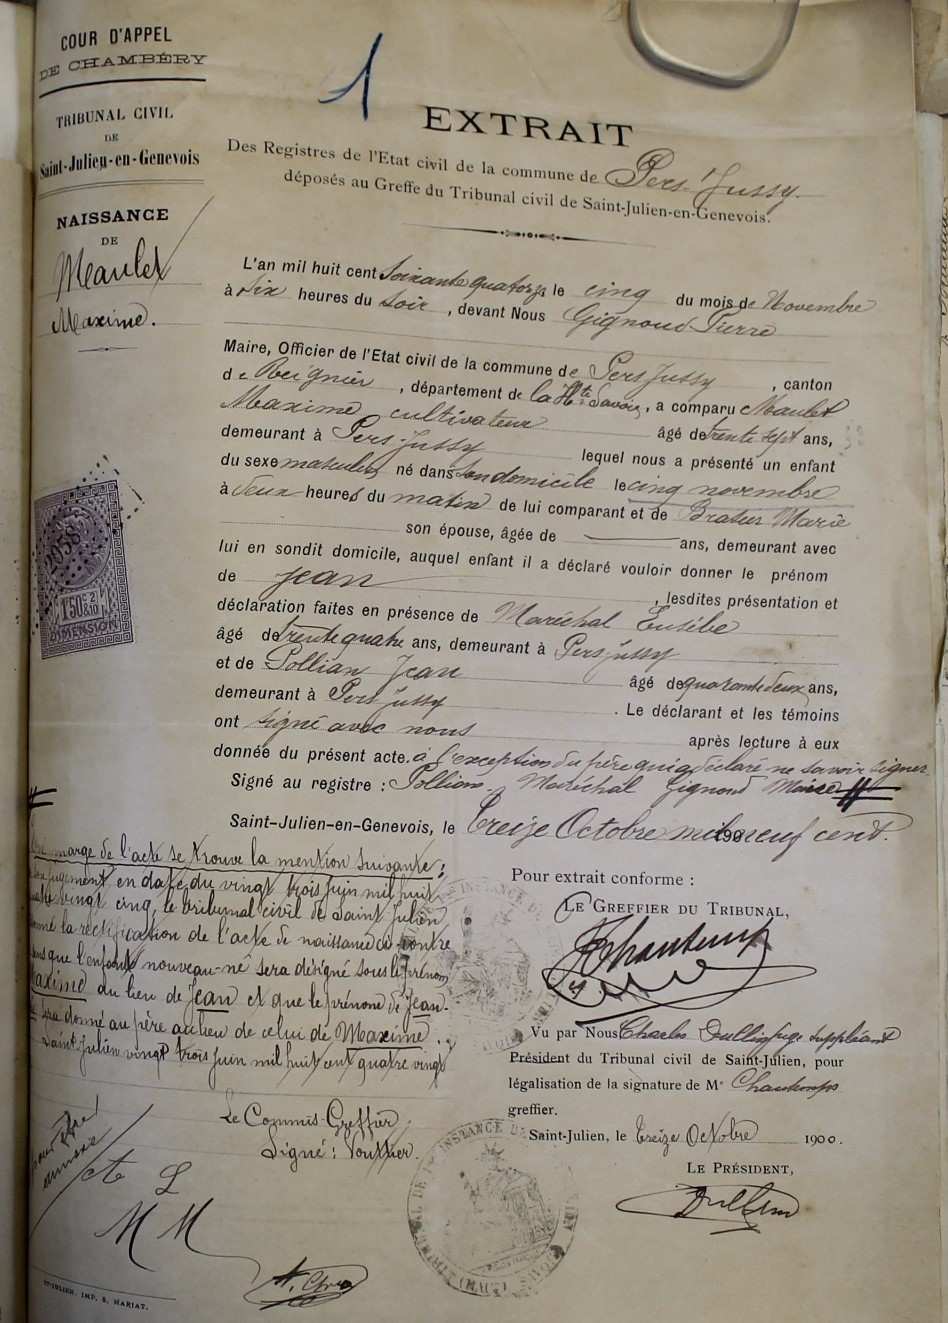 COUR D'APPEL
DE CHAMBÉRY
TRIBUNAL CIVIL
DE
Saint-Julien-en-Genevois
NAISSANCE
DE
Maulet
Maxime.
1
EXTRAIT
Des Registres de l'Etat civil de la commune de Pers-Jussy.
déposés au Greffe du Tribunal civil de Saint-Julien-en-Genevois.
L'an mil huit cent Soixante quatorze le cinq du mois de Novembre
à Six heures du Soir, devant Nous Gignoud Pierre
Maire, Officier de l'Etat civil de la commune de Pers Jussy, canton
de Reignier, département de la Hte Savoie, a comparu Maulet
Maxime cultivateur âgé de trente sept ans,
demeurant à Pers-Jussy lequel nous a présenté un enfant
du sexe masculin, né dans son domicile le cinq novembre
à deux heures du matin de lui comparant et de Marie
son épouse, âgée de ans, demeurant avec
lui en sondit domicile, auquel enfant il a déclaré vouloir donner le prénom
de Jean, lesdites présentation et
déclaration faites en présence de Maréchal Eusèbe
âgé de trente quatre ans, demeurant à Pers Jussy
et de Pollian Jean âgé de quarante deux ans,
demeurant à Pers Jussy. Le déclarant et les témoins
ont signé avec nous après lecture à eux
donnée du présent acte. à l'exception du père qui a déclaré ne savoir signer
Signé au registre : Pollian, Maréchal Gignoud Maire
Saint-Julien-en-Genevois, le Treize Octobre mil neuf cent.
Pour extrait conforme :
LE GREFFIER DU TRIBUNAL,
Vu par Nous Charles Dullin juge suppléant
Président du Tribunal civil de Saint-Julien, pour
légalisation de la signature de Me Chautemps
greffier.
Saint-Julien, le treize Octobre 1900.
LE PRÉSIDENT,
Dullin
2058
1f50c 2/10
DIMENSION
marge de l'acte se trouve la mention suivante :
jugement en date du vingt trois juin mil huit
quatre vingt cinq, le tribunal civil de Saint Julien
la rectification de l'acte de naissance ci-contre
que l'enfant nouveau-né sera désigné sous le prénom
Maxime au lieu de Jean et que le prénom de Jean
sera donné au père au lieu de celui de Maxime.
Saint Julien vingt trois juin mil huit cent quatre vingt
Le Commis-Greffier
Signé : Vouthier.
M M
ST-JULIEN, IMP. S. MARIAT.